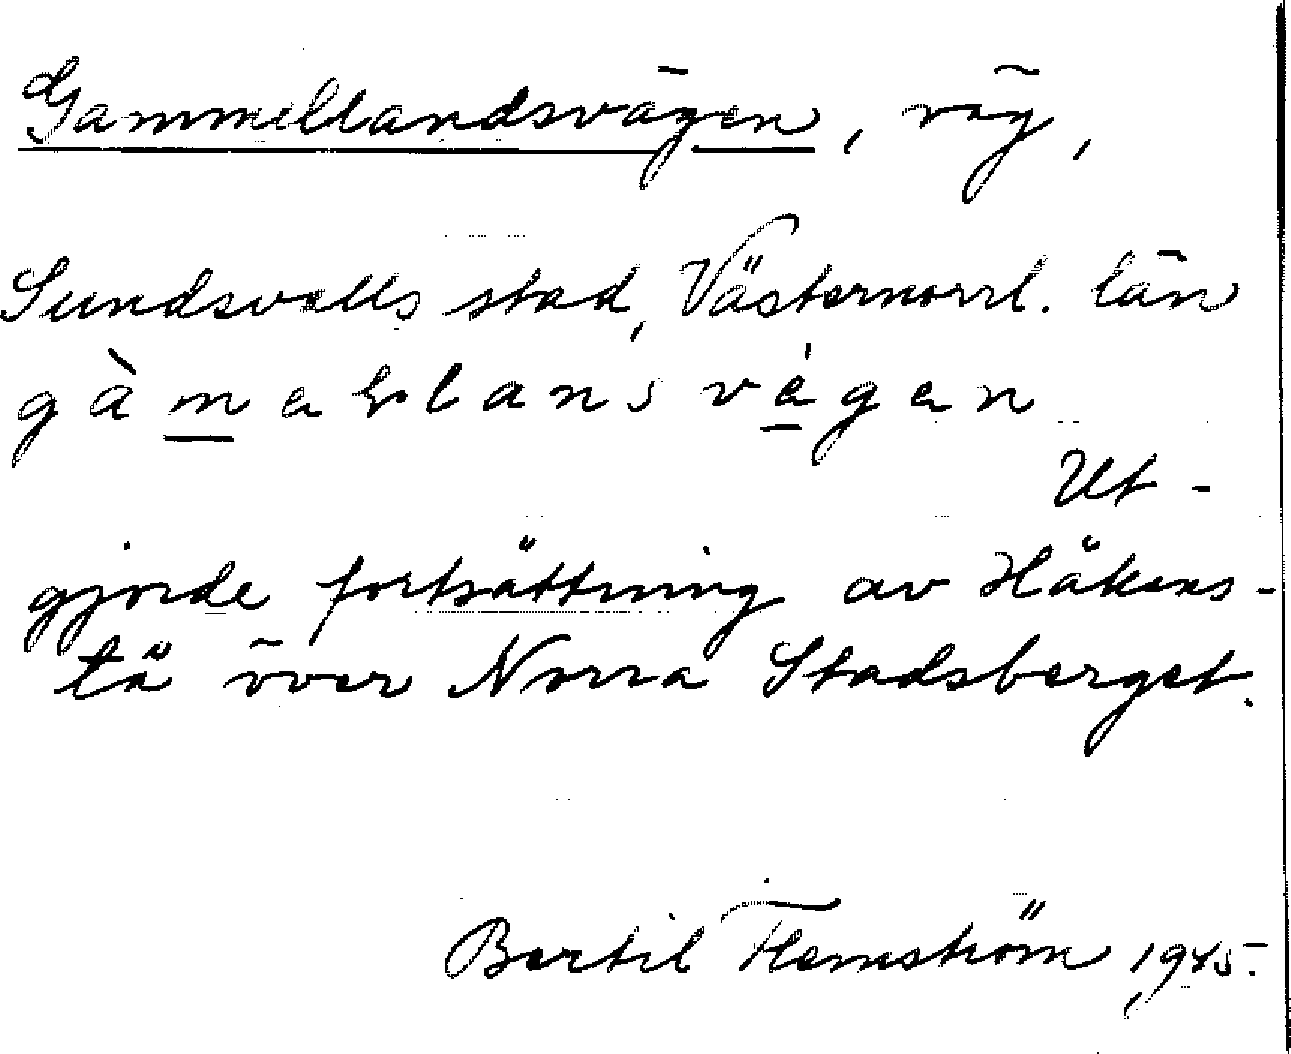 Gammellandsvägen, väg,
Sundsvalls stad, Västernorrl. län
gàmallansvégen
Ut-
gjorde fortsättning av Håkans-
tä över Norra Stadsberget.
Bertil Flemström 1945.